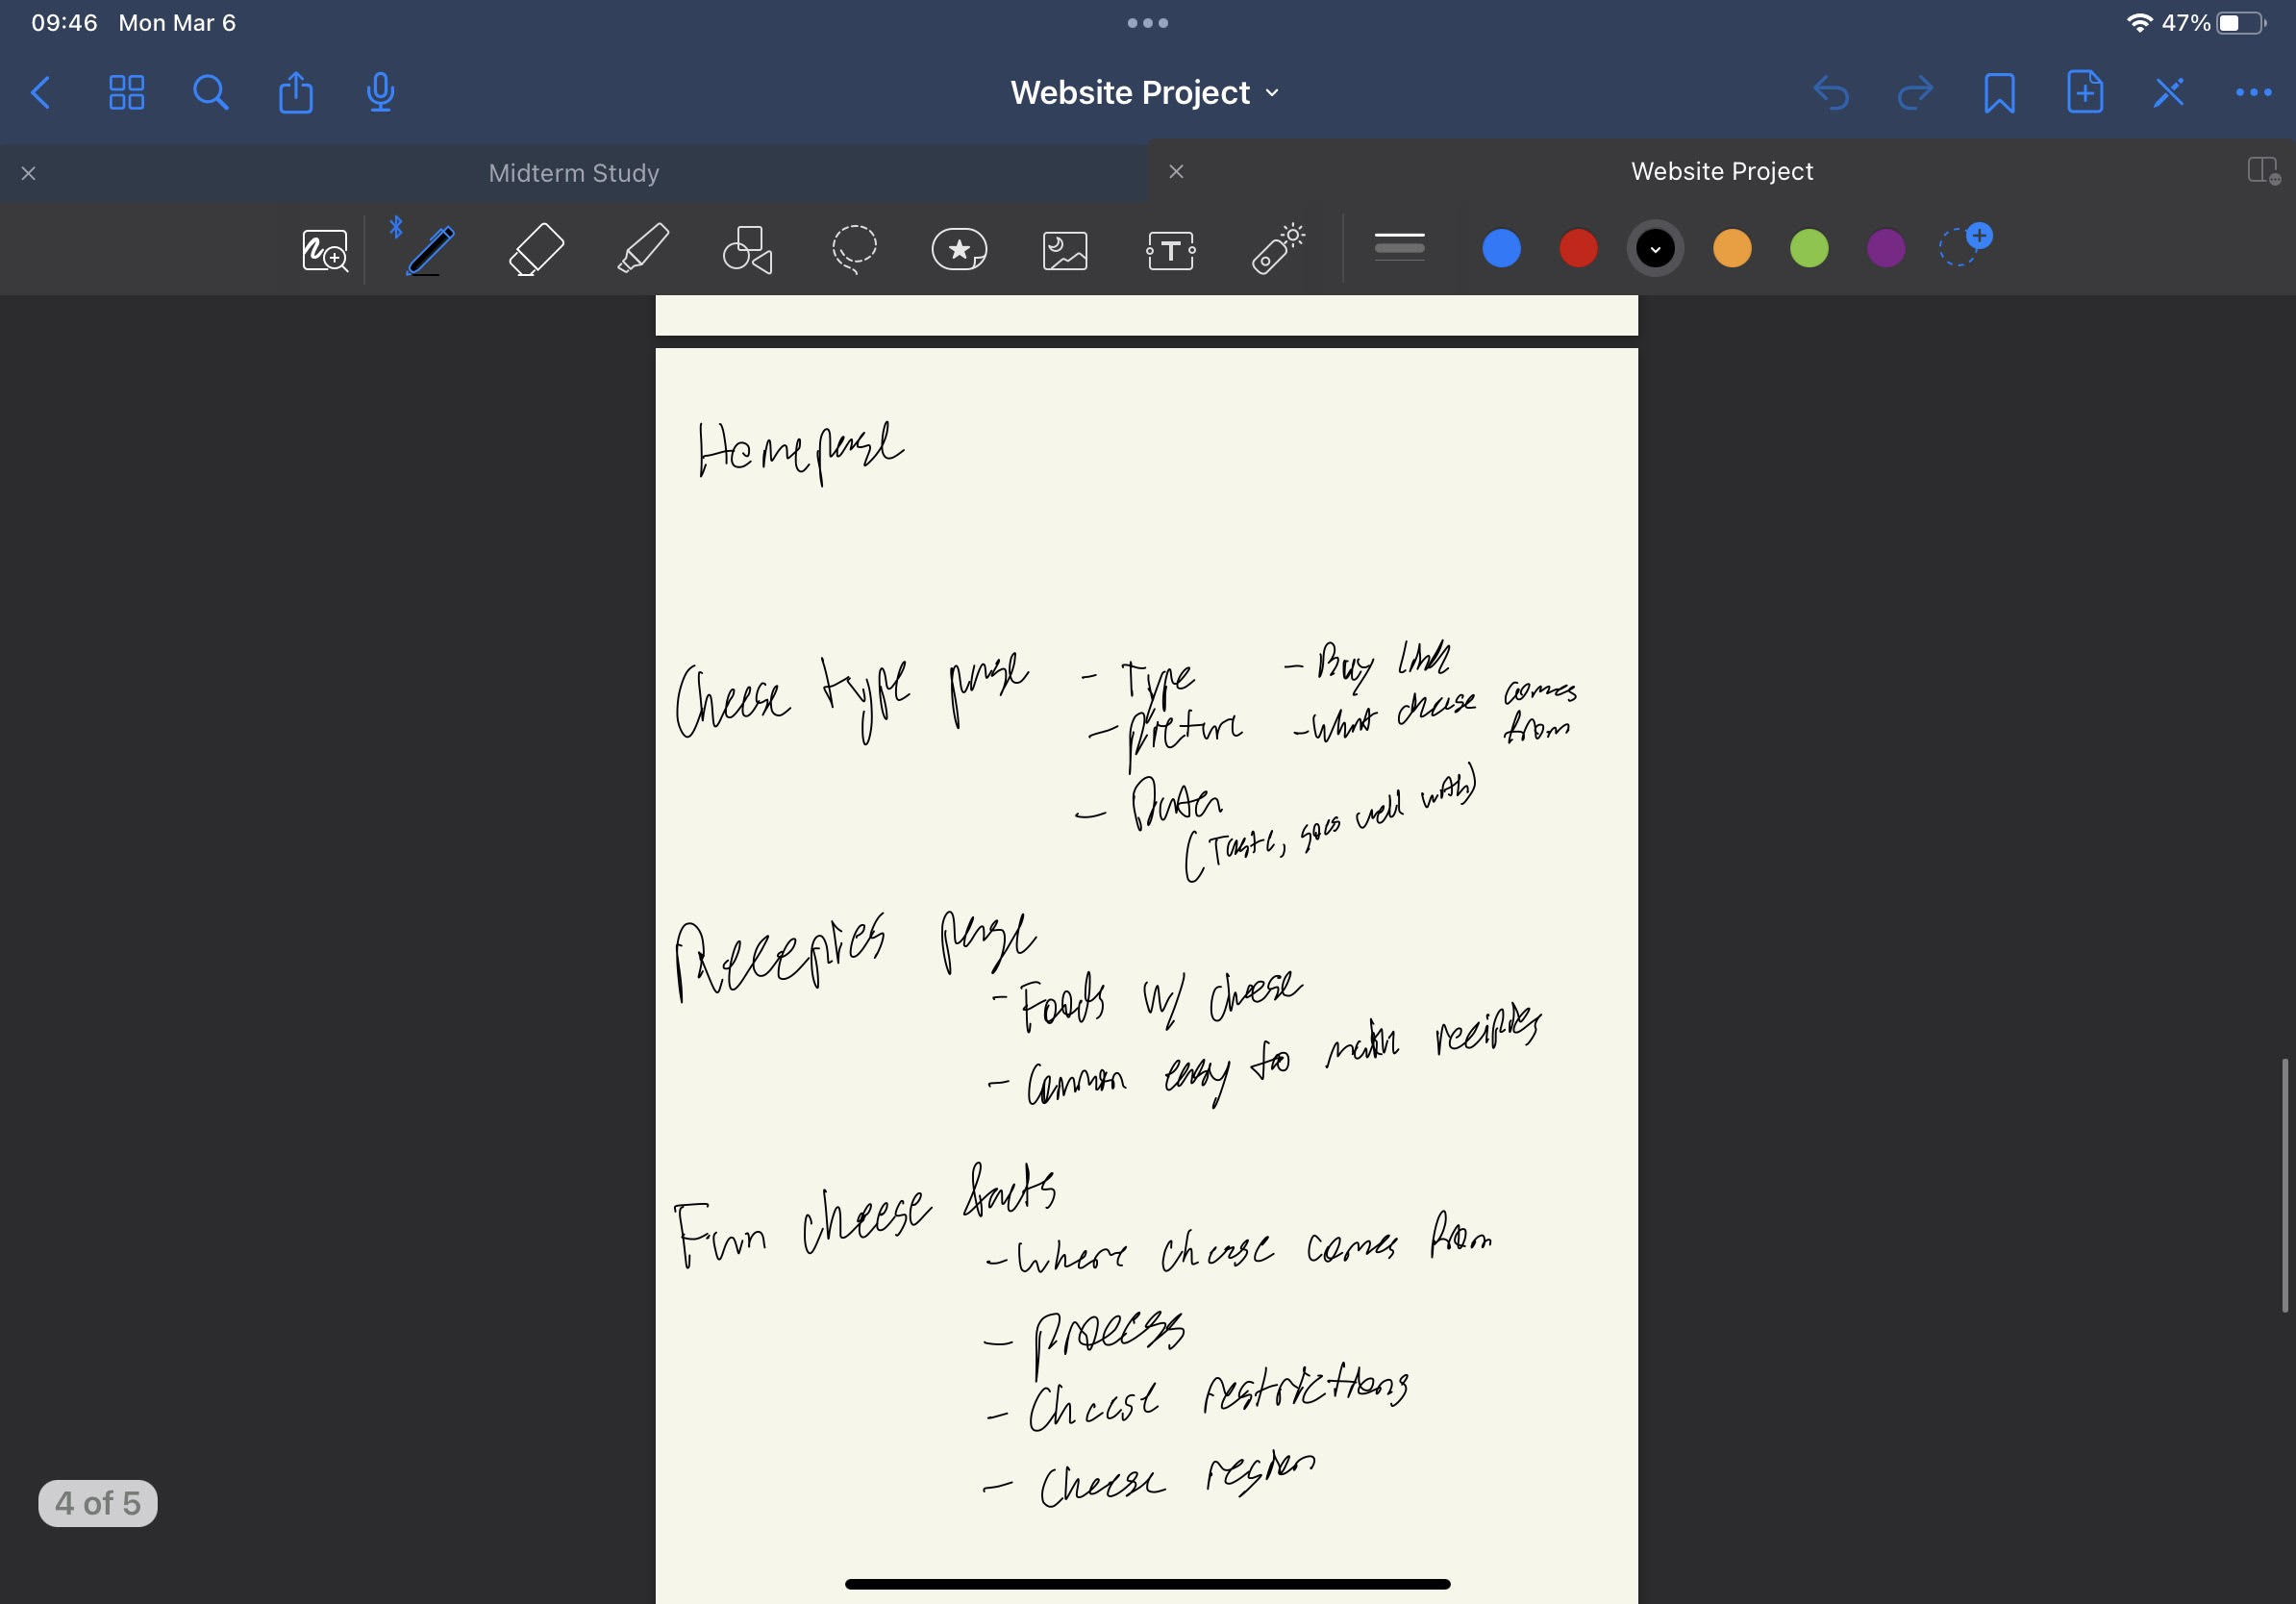 09:46 Mon Mar 6
47%
Website Project
Midterm Study
Website Project
T
Homepage
Cheese type page
- Type
- Picture
-
(Taste, goes well with)
- Buy link
- What cheese comes
from
Receepies page
- Foods w/ cheese
- Common easy to make recipies
Fun cheese facts
- where cheese comes from
- process
- Cheese restrictions
- Cheese region
4 of 5